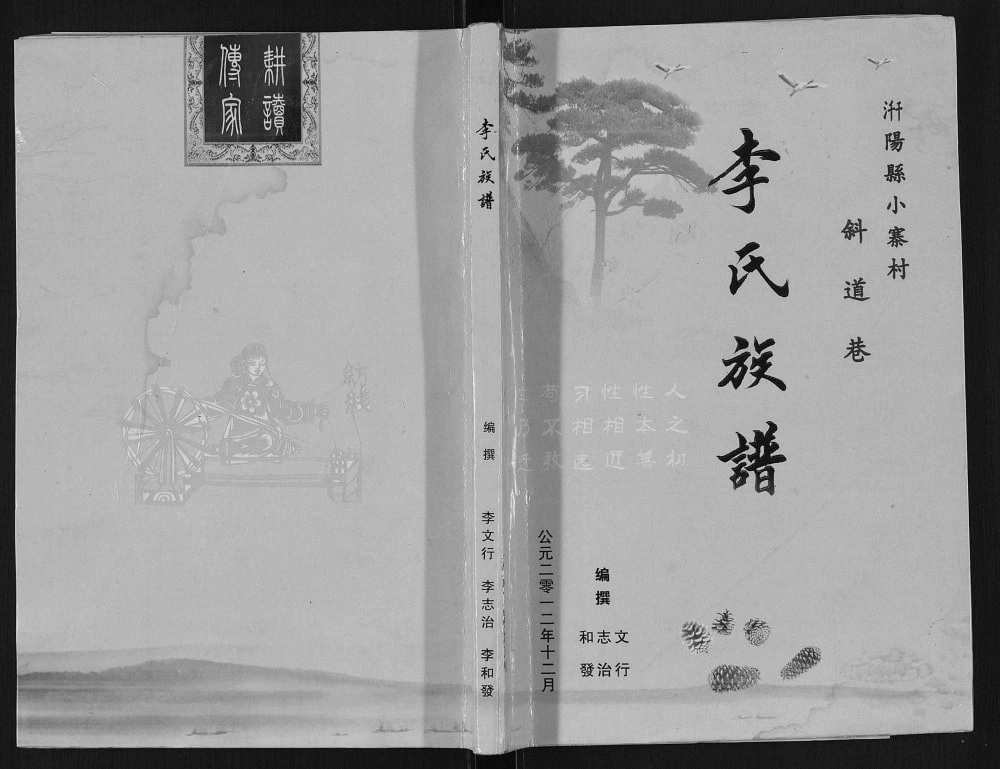 汧陽縣小寨村
斜道巷
李氏族譜
人之初
性本善
性相近
习相远
苟不教
编撰
文行
志治
和發
公元二零一二年十二月
李氏族譜
编撰
李文行
李志治
李和發
耕讀
傳家
紡綫